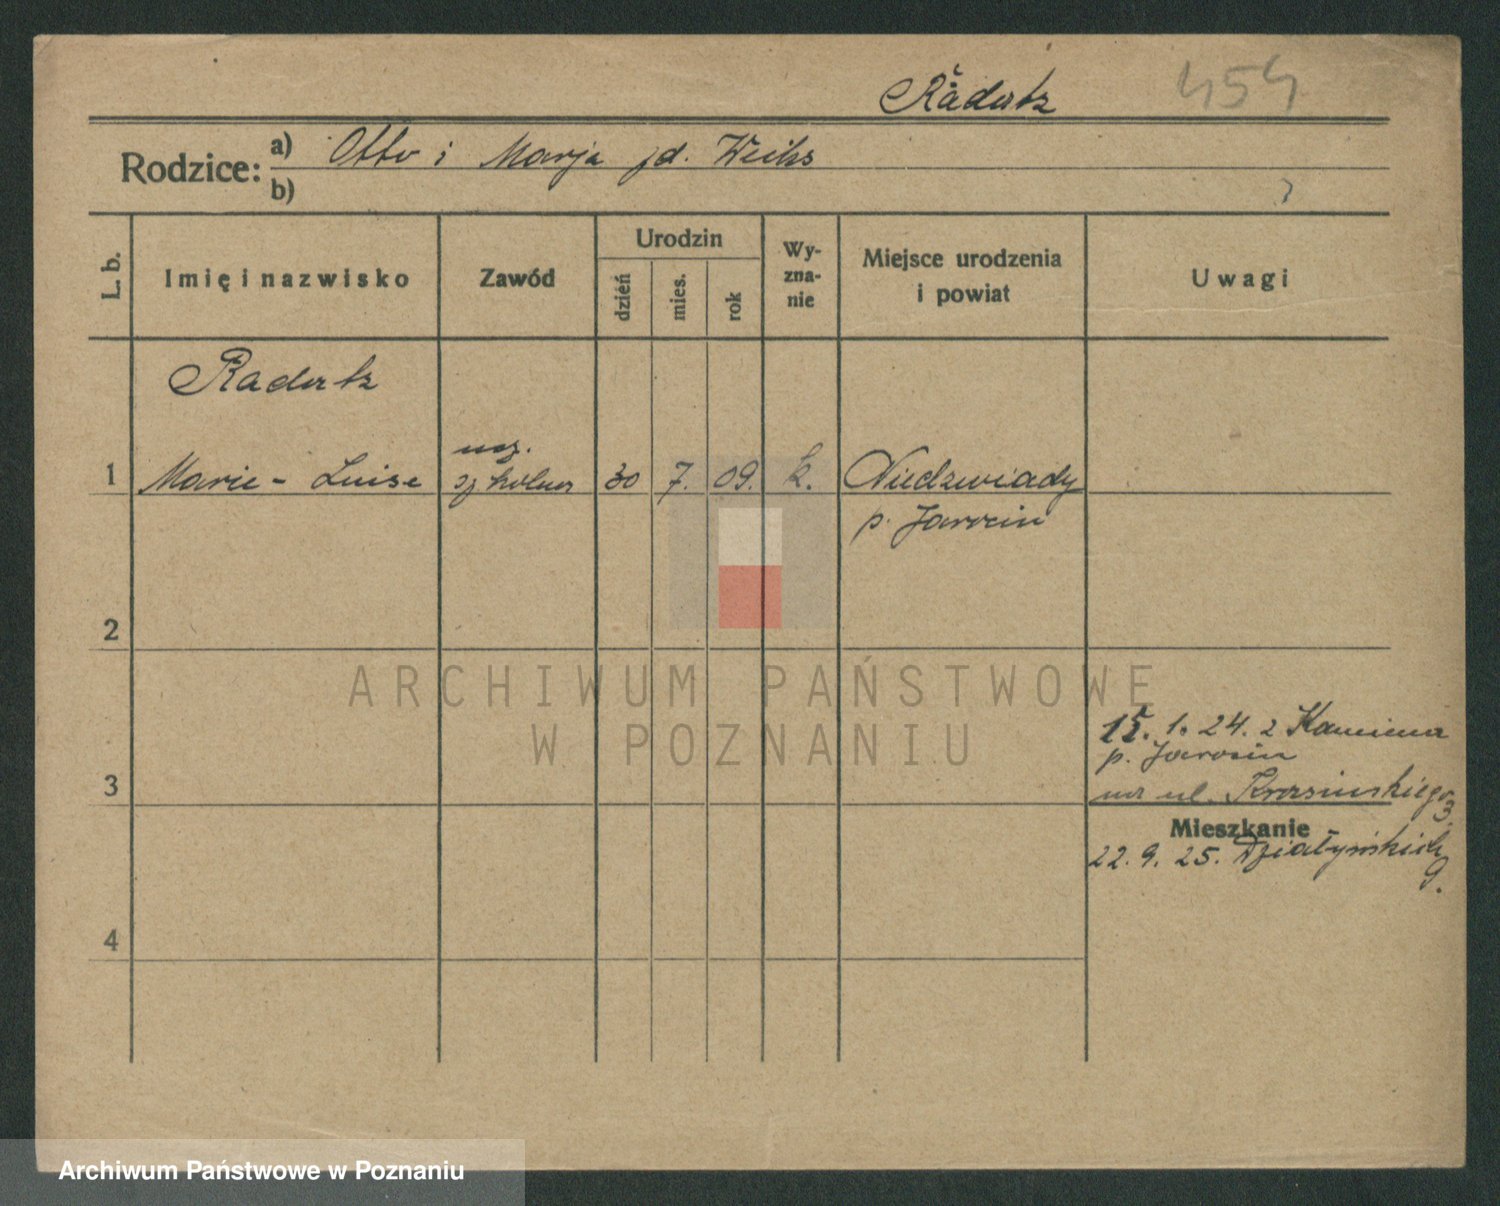 Radatz 454
Rodzice: a) Otto i Marja jd. Weihs
b)
L. b. Imię i nazwisko Zawód Urodzin dzień mies. rok Wy-zna-nie Miejsce urodzenia i powiat Uwagi
Radatz
ucz.
1 Marie - Luise szkolna 30 7. 09. k. Niedzwiady
p. Jarocin
2
ARCHIWUM PAŃSTWOWE
W POZNANIU
15. 1. 24. z Kamienia
p. Jarocin
3 na ul. Krasińskiego 3.
Mieszkanie
22. 9. 25. Działyńskich 9.
4
Archiwum Państwowe w Poznaniu